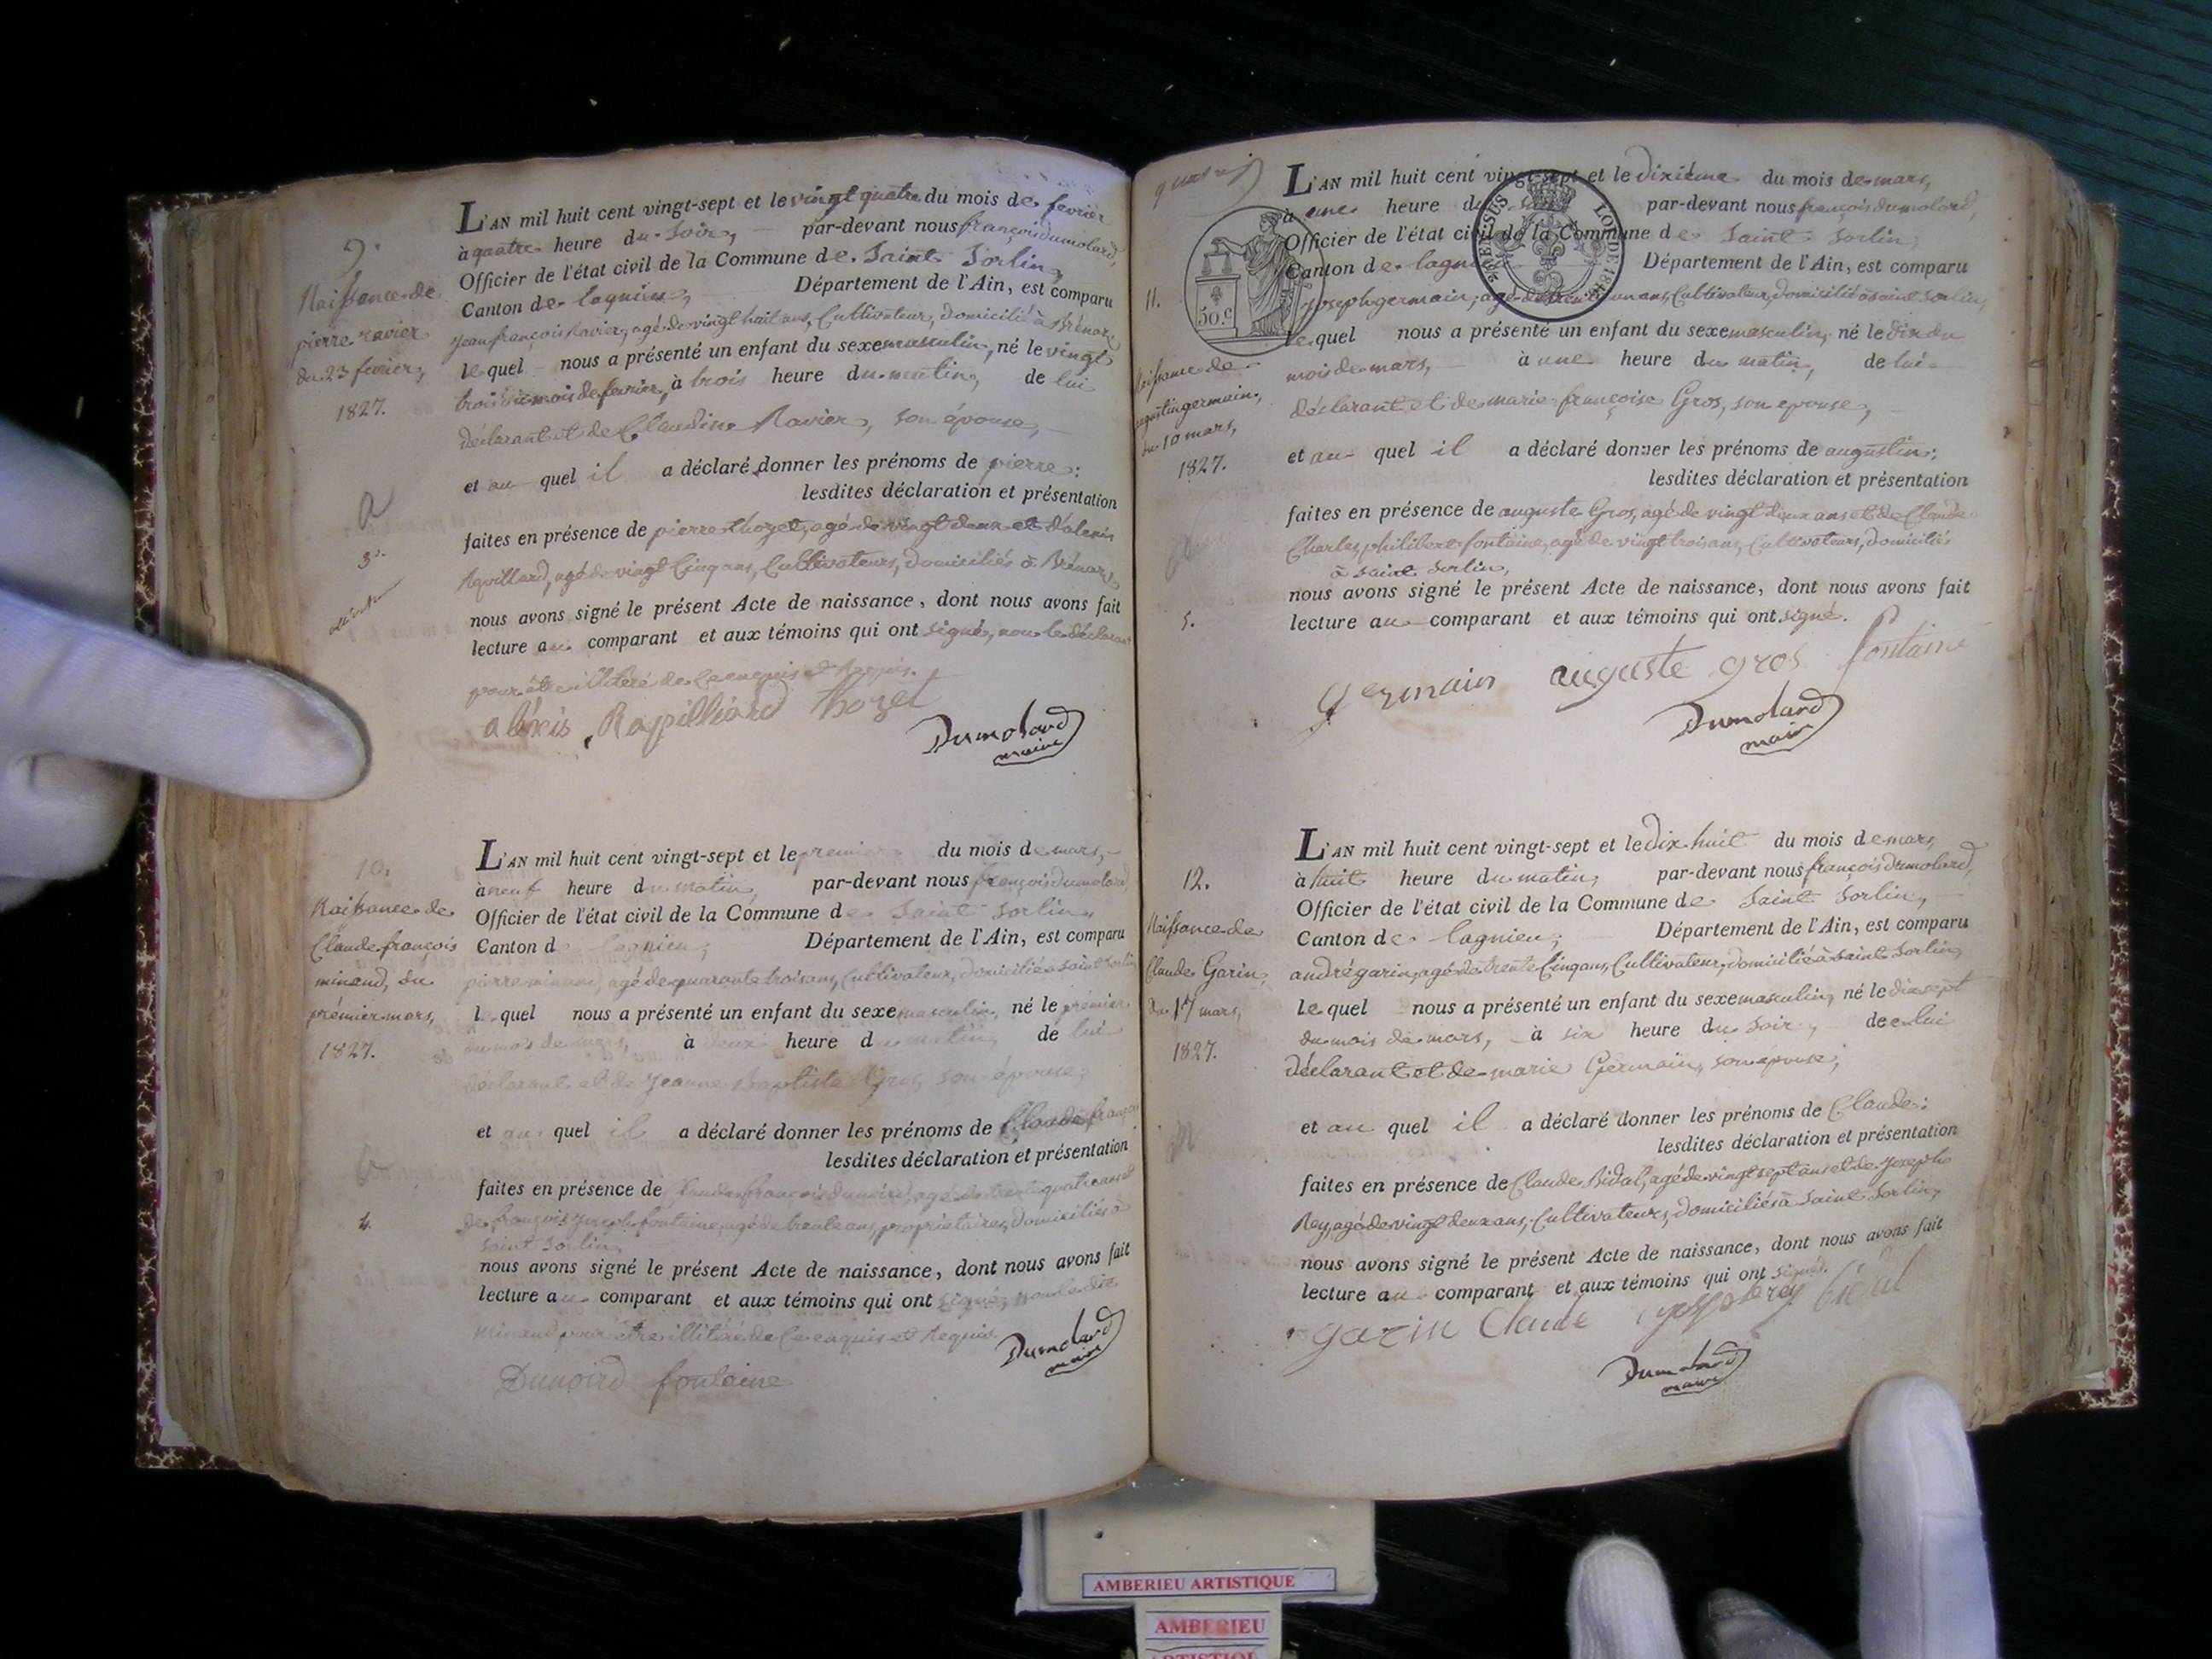 9.
Naissance de
pierre ravier
du 23 fevrier,
1827.
L'AN mil huit cent vingt-sept et le vingt quatre du mois de fevrier
à quatre heure du soir, par-devant nous françois dumolard,
Officier de l'état civil de la Commune de Saint Sorlin,
Canton de lagnieu, Département de l'Ain, est comparu
jean françois Ravier, agé de vingt huit ans, Cultivateur, domicilié à Brénaz
lequel nous a présenté un enfant du sexe masculin, né le vingt
trois du mois de fevrier, à trois heure du matin, de lui
déclarant et de Claudine Ravier, son épouse,
et au quel il a déclaré donner les prénoms de pierre:
lesdites déclaration et présentation
faites en présence de pierre thozet, agé de vingt deux et d'alexis
agé de vingt Cinq ans, Cultivateurs, domiciliés à Brénaz
nous avons signé le présent Acte de naissance, dont nous avons fait
lecture au comparant et aux témoins qui ont signé, non le déclarant
pour être illitéré de ce enquis et requis.
alexis Rapilliard thozet
Dumolard
maire
a
3.
10.
Naissance de
Claude françois
minand, du
prémier mars,
1827.
L'AN mil huit cent vingt-sept et le premier du mois de mars,
à neuf heure du matin, par-devant nous françois dumolard
Officier de l'état civil de la Commune de Saint Sorlin,
Canton de lagnieu, Département de l'Ain, est comparu
pierre minand, agé de quarante trois ans, Cultivateur, domicilié à saint sorlin
lequel nous a présenté un enfant du sexe masculin, né le prémier
du mois de mars, à deux heure du matin, de lui
déclarant et de Jeanne Baptiste Gros, son épouse;
et au quel il a déclaré donner les prénoms de Claude françois
lesdites déclaration et présentation
faites en présence de Claude françois dunoird, agé de trente quatre ans et
de françois joseph fontaine, agé de trente ans, propriétaires, domiciliés à
saint Sorlin,
nous avons signé le présent Acte de naissance, dont nous avons fait
lecture au comparant et aux témoins qui ont signé, non ledit
minand pour être illitéré de ce enquis et requis
Dunoird fontaine
Dumolard
maire
4.
11.
Naissance de
augustin germain,
du 10 mars,
1827.
50.c
L'AN mil huit cent vingt-sept et le dixiéme du mois de mars,
à une heure du soir par-devant nous françois dumolard,
Officier de l'état civil de la Commune de Saint Sorlin,
Canton de lagnieu Département de l'Ain, est comparu
joseph germain, agé de trente un ans, Cultivateur, domicilié à saint Sorlin,
lequel nous a présenté un enfant du sexe masculin, né le dix du
mois de mars, à une heure du matin, de lui
déclarant et de marie françoise Gros, son epouse,
et au quel il a déclaré donner les prénoms de augustin:
lesdites déclaration et présentation
faites en présence de auguste Gros, agé de vingt deux ans et de Claude
Charles philibert fontaine, agé de vingt trois ans, Cultivateurs, domiciliés
à saint Sorlin,
nous avons signé le présent Acte de naissance, dont nous avons fait
lecture au comparant et aux témoins qui ont signé.
germain auguste gros fontaine
Dumolard
maire
5.
12.
Naissance de
Claude Garin,
du 17 mars,
1827.
L'AN mil huit cent vingt-sept et le dix huit du mois de mars,
à huit heure du matin; par-devant nous françois dumolard,
Officier de l'état civil de la Commune de Saint Sorlin,
Canton de lagnieu; Département de l'Ain, est comparu
andré garin, agé de trente Cinq ans, Cultivateur, domicilié à saint Sorlin,
lequel nous a présenté un enfant du sexe masculin, né le dix sept
du mois de mars, à six heure du soir, de lui
déclarant et de marie Germain, son épouse;
et au quel il a déclaré donner les prénoms de Claude:
lesdites déclaration et présentation
faites en présence de Claude Bidal, agé de vingt sept ans et de joseph
Rey, agé de vingt deux ans, Cultivateurs, domiciliés à Saint Sorlin,
nous avons signé le présent Acte de naissance, dont nous avons fait
lecture au comparant et aux témoins qui ont signé.
garin Claude joseph rey bidal
Dumolard
maire
AMBERIEU ARTISTIQUE
AMBERIEU
ARTISTIQUE